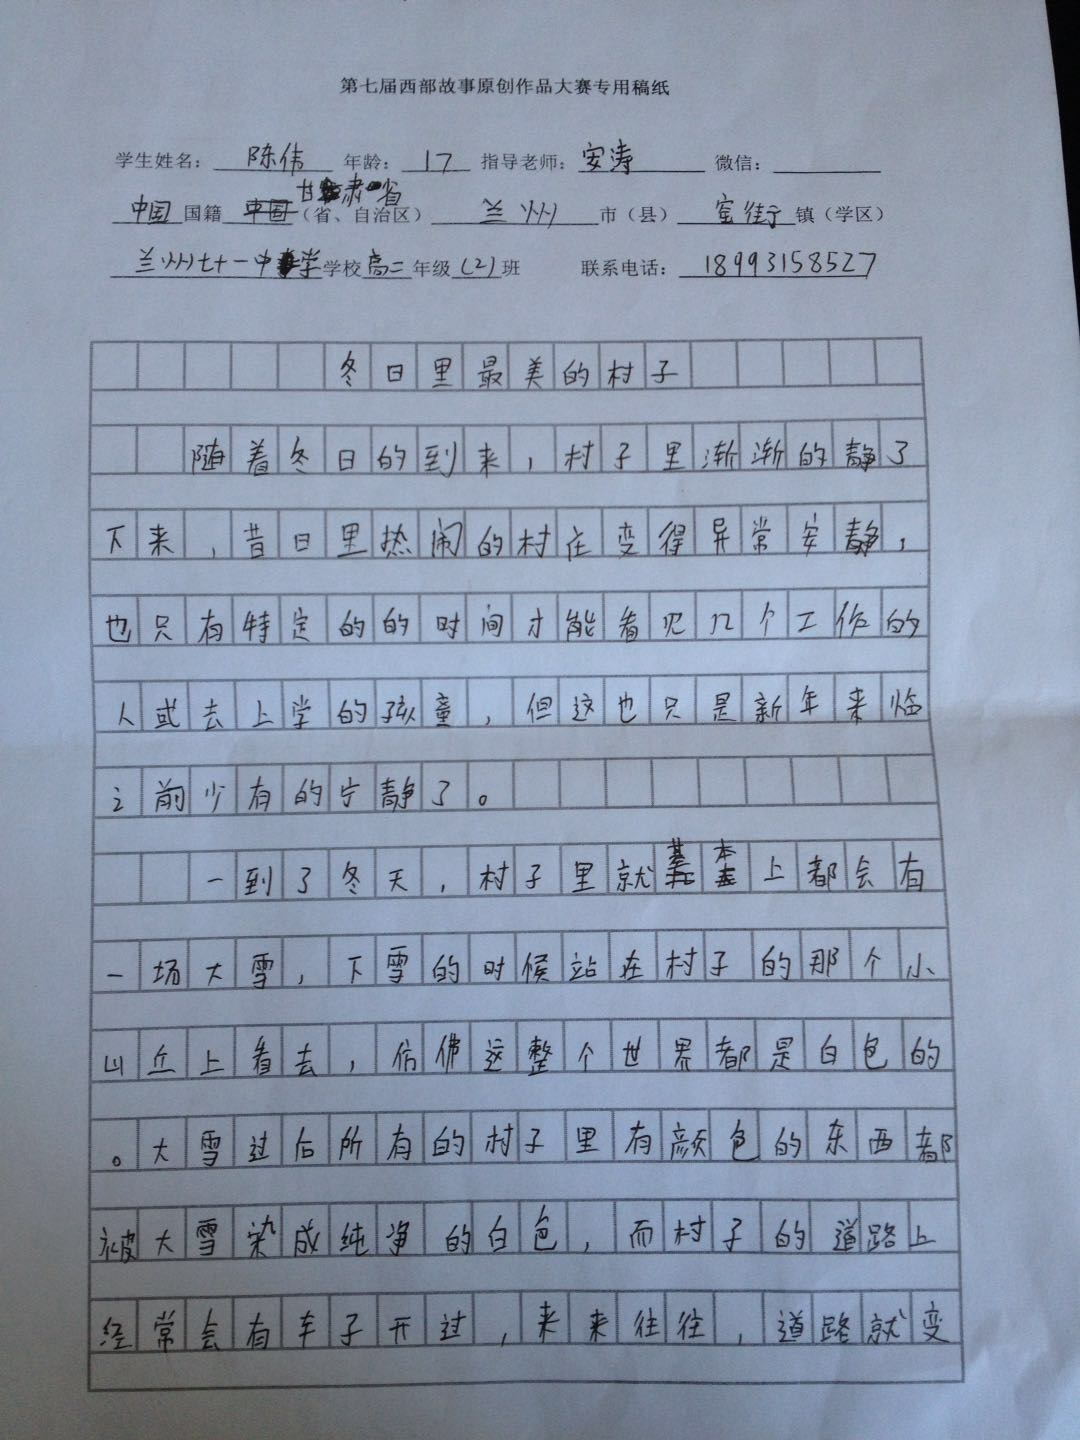 第七届西部故事原创作品大赛专用稿纸
学生姓名：陈伟 年龄：17 指导老师：安涛 微信：
中国国籍 甘肃省（省、自治区）兰州市（县）窑街镇（学区）
兰州七十一中学学校高二年级（2）班 联系电话：18993158527
冬日里最美的村子
随着冬日的到来，村子里渐渐的静了
下来，昔日里热闹的村庄变得异常安静，
也只有特定的的时间才能看见几个工作的
人或去上学的孩童，但这也只是新年来临
之前少有的宁静了。
一到了冬天，村子里就基本上都会有
一场大雪，下雪的时候站在村子的那个小
山丘上看去，仿佛这整个世界都是白色的
。大雪过后所有的村子里有颜色的东西都
被大雪染成纯净的白色，而村子的道路上
经常会有车子开过，来来往往，道路就变